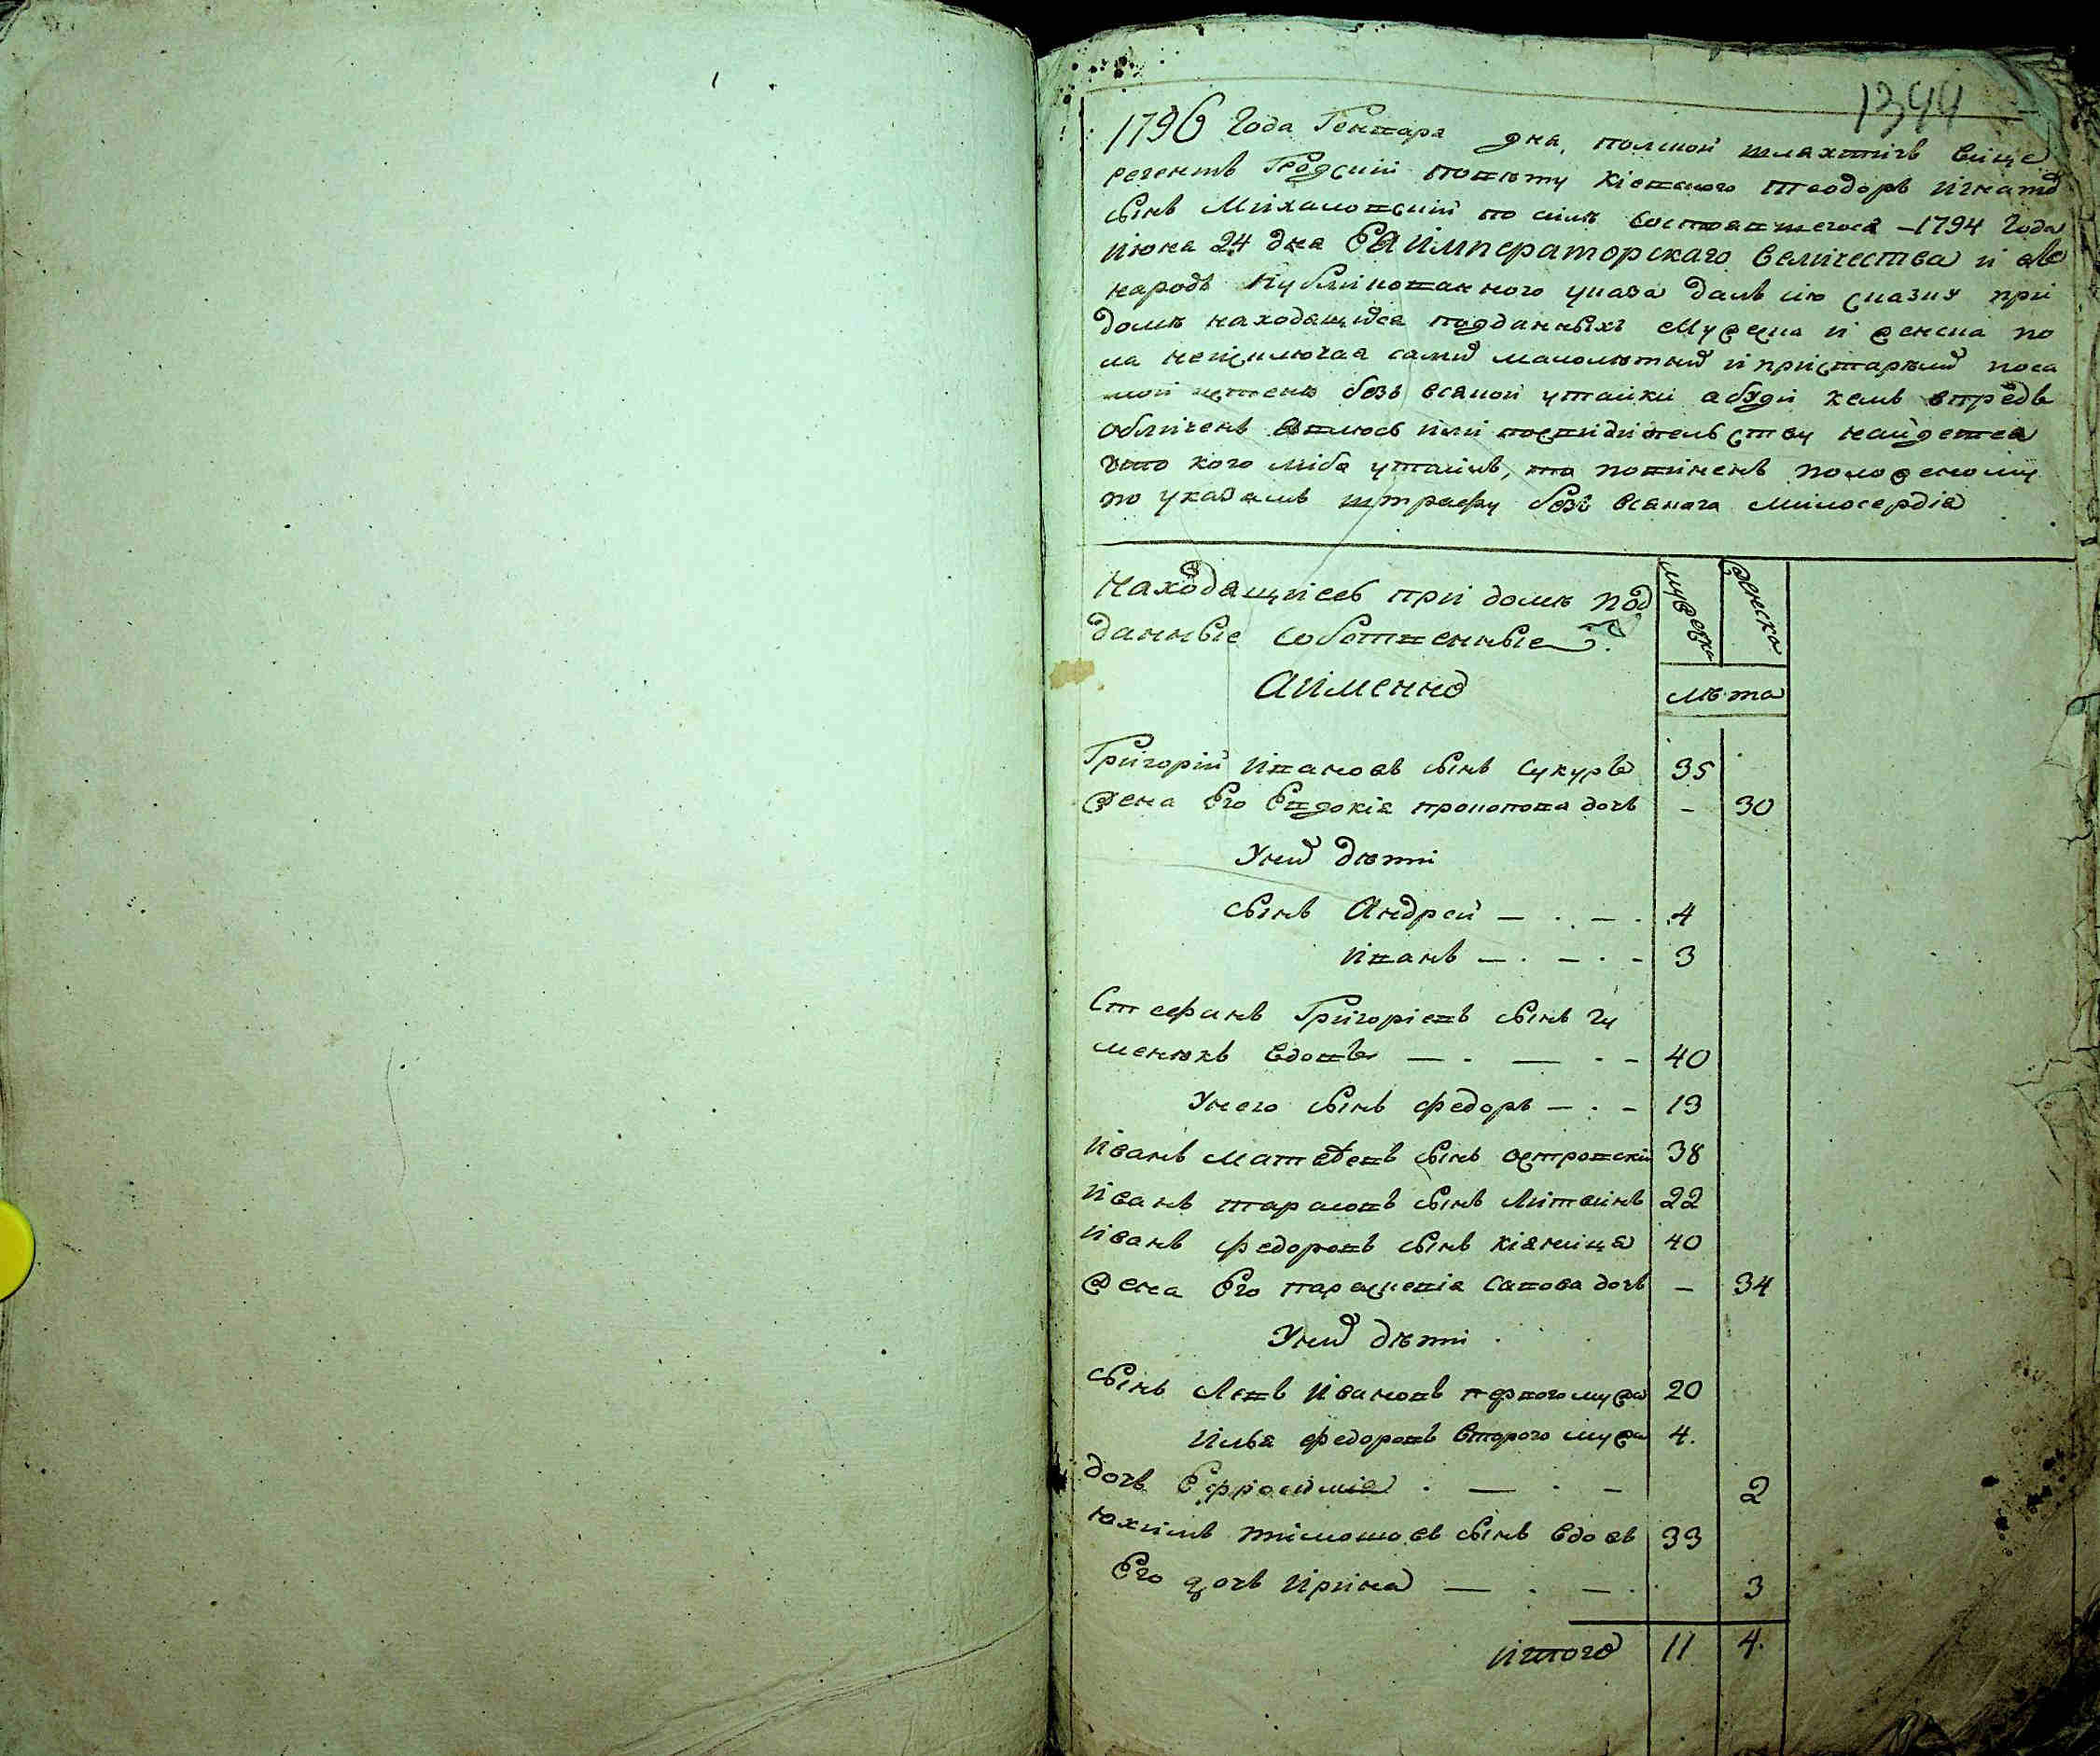 1344
1796 Года Генваря дня, полской шляхтичъ вице
регентъ Гродский повѣту Кіевского Теодоръ Игнатов
сынъ Михаловский по силѣ состоявшегося - 1794 Года
июня 24 дня Ея Императорскаго Величества и в
народъ публикованного указа далъ сію сказку при
домѣ находящихся подданныхъ мужеска и женска по
ла неисключая самих малолѣтних и пристарѣлих
безъ всякой утайки а буди кемъ впредъ
обличенъ явлюсь или посвидителству найдется
что кого либо утаилъ, то повиненъ положеному
по указамъ штрафу безъ всякаго милосердія
Находящиесь при домѣ под
данные собственные
мужеска
женска
Аименно
лѣта
Григорій Ивановъ сынъ Сукуръ 35
жена Его Евдокія Прокопова дочь - 30
У них дѣти
сынъ Андрей — . — . 4
Иванъ — . — . - 3
Стефанъ Григоріевъ сынъ Гу
менюкъ вдовъ — . — . - 40
У него сынъ Федоръ — . - 13
Иванъ Матвѣевъ сынъ Островский 38
Иванъ Тарасовъ сынъ Литвинъ 22
Иванъ Федоровъ сынъ Кіяница 40
жена Его Параскевія Савова дочь - 34
У них дѣти
сынъ Левъ Ивановъ первого мужа 20
Илья Федоровъ второго мужа 4.
дочь Ефросинія . — . — 2
Юхимъ Тимошовъ сынъ вдовъ 33
Его дочь Ирина — . — . 3
Итого 11 4.